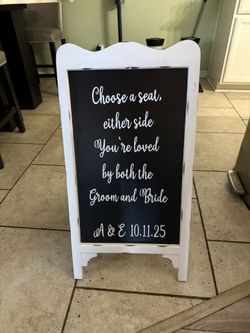 Choose a seat,
either side
You're loved
by both the
Groom and Bride
A & E 10.11.25